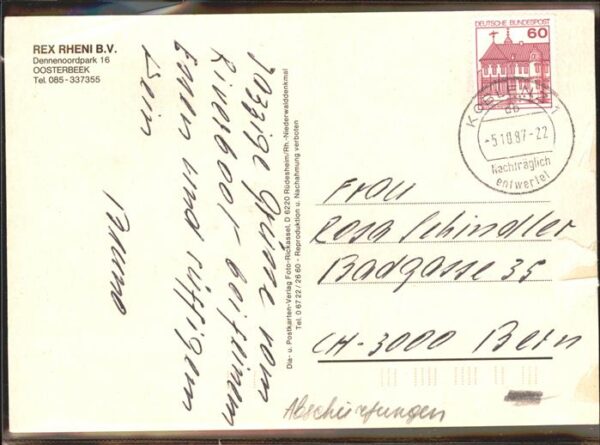 REX RHENI B.V.
Dennenoordpark 16
OOSTERBEEK
Tel. 085-337355
Jazzige Grüsse vom
Riverboot bei feinem
Essen und süffigem
Wein
Bruno
Dia- u. Postkarten-Verlag Foto-Rickassel, D 6220 Rüdesheim/Rh. -Niederwalddenkmal
Tel. 0 67 22 / 26 60 - Reproduktion u. Nachahmung verboten
DEUTSCHE BUNDESPOST
60
KOBLENZ 1
-5.10.87-22
Nachträglich
entwertet
Frau
Rosa Schindler
Badgasse 35
CH-3000 Bern
Abschürfungen